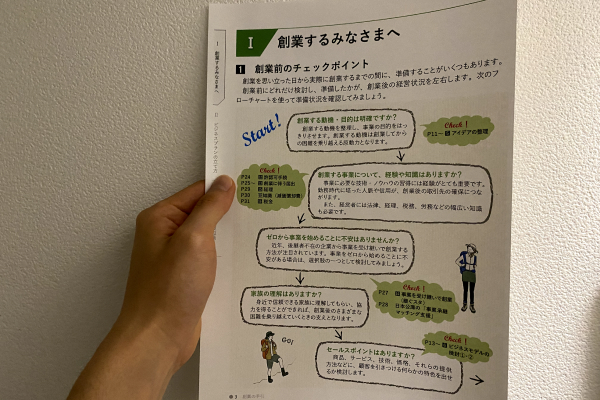 I 創業するみなさまへ
1 創業前のチェックポイント
創業を思い立った日から実際に創業するまでの間に、準備することがいくつもあります。
創業前にどれだけ検討し、準備したかが、創業後の経営状況を左右します。次のフ
ローチャートを使って準備状況を確認してみましょう。
Start!
創業する動機・目的は明確ですか?
創業する動機を整理し、事業の目的をはっ
きりさせます。創業する動機は創業してか
らの困難を乗り越える原動力となります。
Check!
P11~ アイデアの整理
創業する事業について、経験や知識はありますか?
事業に必要な技術・ノウハウの習得には経験がとても重要です。
勤務時代に培った人脈や信用が、創業後の取引先の確保につな
がります。
また、経営者には法律、経理、税務、労務などの幅広い知識
も必要です。
Check!
P24 許認可手続
P25~ 創業に伴う届出
P28 経理
P30
P31 税金
ゼロから事業を始めることに不安はありませんか?
近年、後継者不在の企業から事業を受け継いで創業する
方法が注目されています。事業をゼロから始めることに不
安がある場合は、選択肢の一つとして検討してみましょう。
Check!
P27 事業を受け継いで創業
(継ぐスタ)
P28 日本公庫の「事業承継
マッチング支援」
家族の理解はありますか?
身近で信頼できる家族に理解してもらい、協
力を得ることができれば、創業後のさまざまな
困難を乗り越えていくときの支えとなります。
GO!
セールスポイントはありますか?
商品、サービス、技術、価格、それらの提供
方法などに、顧客を引きつける何らかの特色を出せ
るか検討します。
Check!
P13~ ビジネスモデルの
検討①・②
I 創業するみなさまへ
3 創業の手引